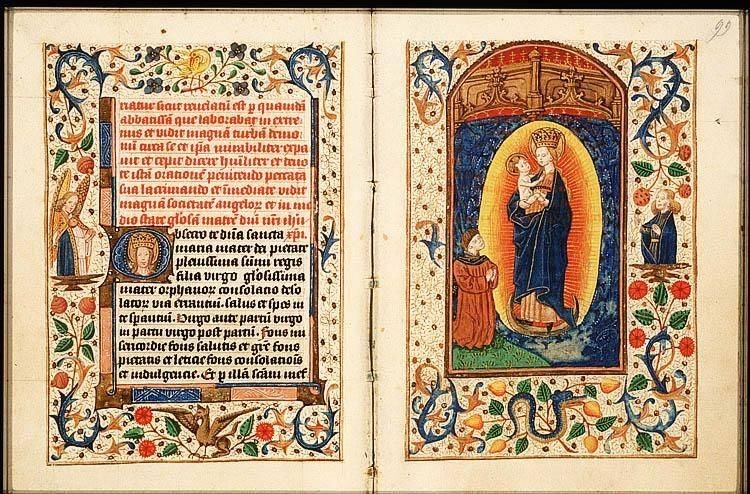 eratur sicut reuelatū est p quandā
abbatissā que laborabat in extre
mis et vidit magnā turbam demo
nū circa se et ipā mirabiliter expa
uit et cepit dicere hūiliter et deuo
te istā orationem penitendo peccata
sua lacrimando et īmediate vidit
magnā societatē angelor et in me
dio stare glōsam matrē dnī nrī ihū
Obsecro te dnā sancta xpī.
maria mater dei pietate
plenissima sūmi regis
filia virgo glōsissima
mater orphanor consolatio deso
lator via errantiū. salus et spes in
te sperantiū. Virgo ante partū virgo
in partu virgo post partū. Fons mi
sericordie fons salutis et grē fons
pietatis et leticie fons consolatiōis
et indulgencie. Et p illā scām inef
99